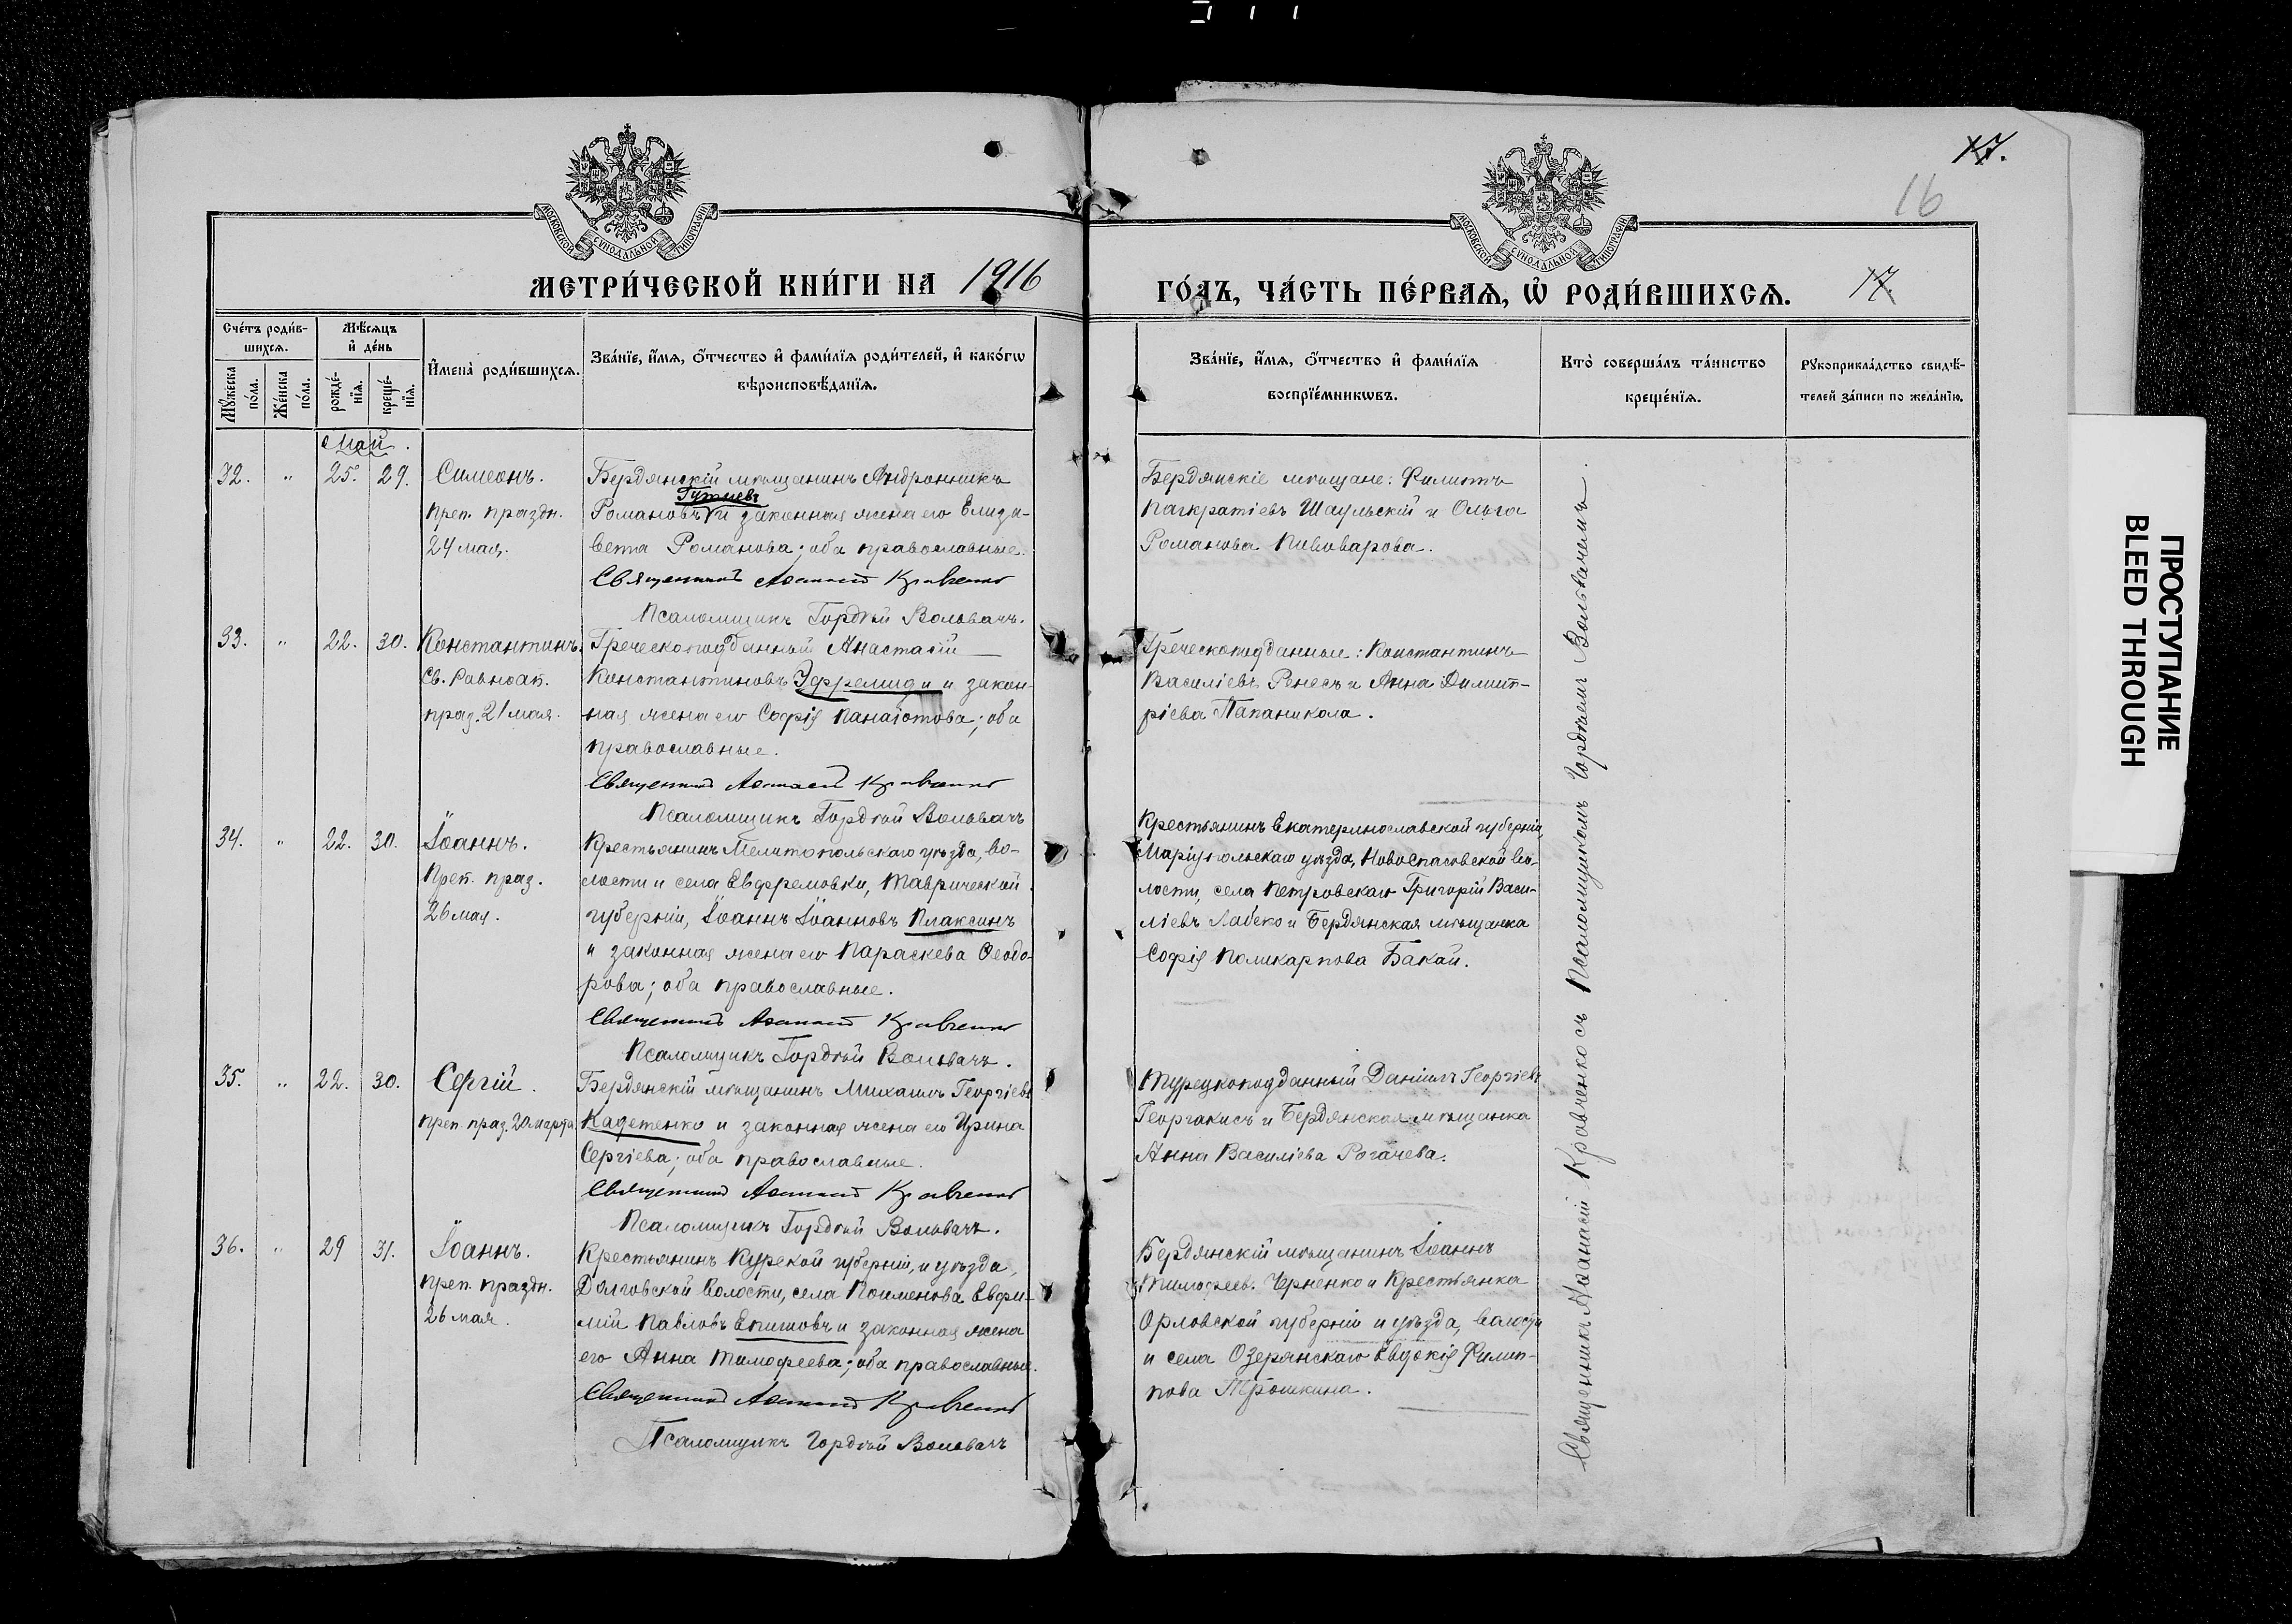 17.
16
МОСКОВСКОЙ СѴНОДАЛЬНОЙ ТИПОГРАФІИ
МОСКОВСКОЙ СѴНОДАЛЬНОЙ ТИПОГРАФІИ
МЕТРИ́ЧЕСКОЙ КНИ́ГИ НА 1916
ГО́ДЪ, ЧА́СТЬ ПЕ́РВАѦ, Ѡ҆ РОДИ́ВШИХСѦ. 17.
Сче́тъ роди́в-
шихсѧ.
Мѣ́сѧцъ
и҆ де́нь
Мꙋ́жеска
по́ла.
Же́нска
по́ла.
рожде́-
нїѧ.
креще́-
нїѧ.
И҆мена̀ роди́вшихсѧ.
Зва́нїе, и҆́мѧ, ѻ҆́тчество и҆ фами́лїѧ роди́телей, и҆ како́гѡ
вѣроисповѣ́данїѧ.
Зва́нїе, и҆́мѧ, ѻ҆́тчество и҆ фами́лїѧ
воспрїе́мникѡвъ.
Кто̀ соверша́лъ та́инство
креще́нїѧ.
Рꙋкоприкла́дство свидѣ́-
телей за́писи по жела́нїю.
Май.
32. " 25. 29. Симеонъ.
преп. праздн.
24 мая.
Бердянскій мѣщанинъ Андронникъ
Гутиевъ
Романовъ и законная жена его Елиза-
вета Романова; оба православные.
Священникъ Аѳанасій Кравченко
Псаломщикъ Гордѣй Воловачъ.
Бердянскіе мѣщане: Филиппъ
Панкратіевъ Шаульскій и Ольга
Романова Пивоварова.
33. " 22. 30. Константинъ.
Св. Равноап.
праз. 21 мая.
Греческоподданный Анастасій
Константиновъ Эфремиди и закон-
ная жена его Софія Панаіотова; оба
православные.
Священникъ Аѳанасій Кравченко
Псаломщикъ Гордѣй Воловачъ
Греческоподданные: Константинъ
Василіевъ Ренесъ и Анна Димит-
ріева Папаникола.
34. " 22. 30. Іоаннъ.
Преп. праз.
26 мая.
Крестьянинъ Мелитопольскаго уѣзда, во-
лости и села Евфремовки, Таврической
губерніи, Іоаннъ Іоанновъ Плаксинъ
и законная жена его Параскева Ѳеодо-
рова; оба православные.
Священникъ Аѳанасій Кравченко
Псаломщикъ Гордѣй Воловачъ.
Крестьянинъ Екатеринославской губерніи,
Маріупольскаго уѣзда, Новоспасовской во-
лости, села Петровскаго Григорій Васи-
ліевъ Лабеко и Бердянская мѣщанка
Софія Поликарпова Бакай.
35. " 22. 30. Сергій.
преп. праз. 20 марта
Бердянскій мѣщанинъ Михаилъ Георгіевъ
Кадетенко и законная жена его Ирина
Сергіева; оба православные.
Священникъ Аѳанасій Кравченко
Псаломщикъ Гордѣй Воловачъ.
Турецкоподданный Даніилъ Георгіевъ
Георгакисъ и Бердянская мѣщанка
Анна Василіева Рогачева.
36. " 29 31. Іоаннъ.
преп. праздн.
26 мая.
Крестьянинъ Курской губерніи, и уѣзда,
Дьяговской волости, села Поименова Евфи-
мій Павловъ Епишовъ и законная жена
его Анна Тимофеева; оба православные.
Священникъ Аѳанасій Кравченко
Псаломщикъ Гордѣй Воловачъ
Бердянскій мѣщанинъ Іоаннъ
Тимофеев. Черненко и Крестьянка
Орловской губерніи и уѣзда, волости
и села Озерянскаго Евдокія Филип-
пова Трошкина.
Священникъ Аѳанасій Кравченко съ Псаломщикомъ Гордѣемъ Воловачемъ.
ПРОСТУПАНИЕ
BLEED THROUGH